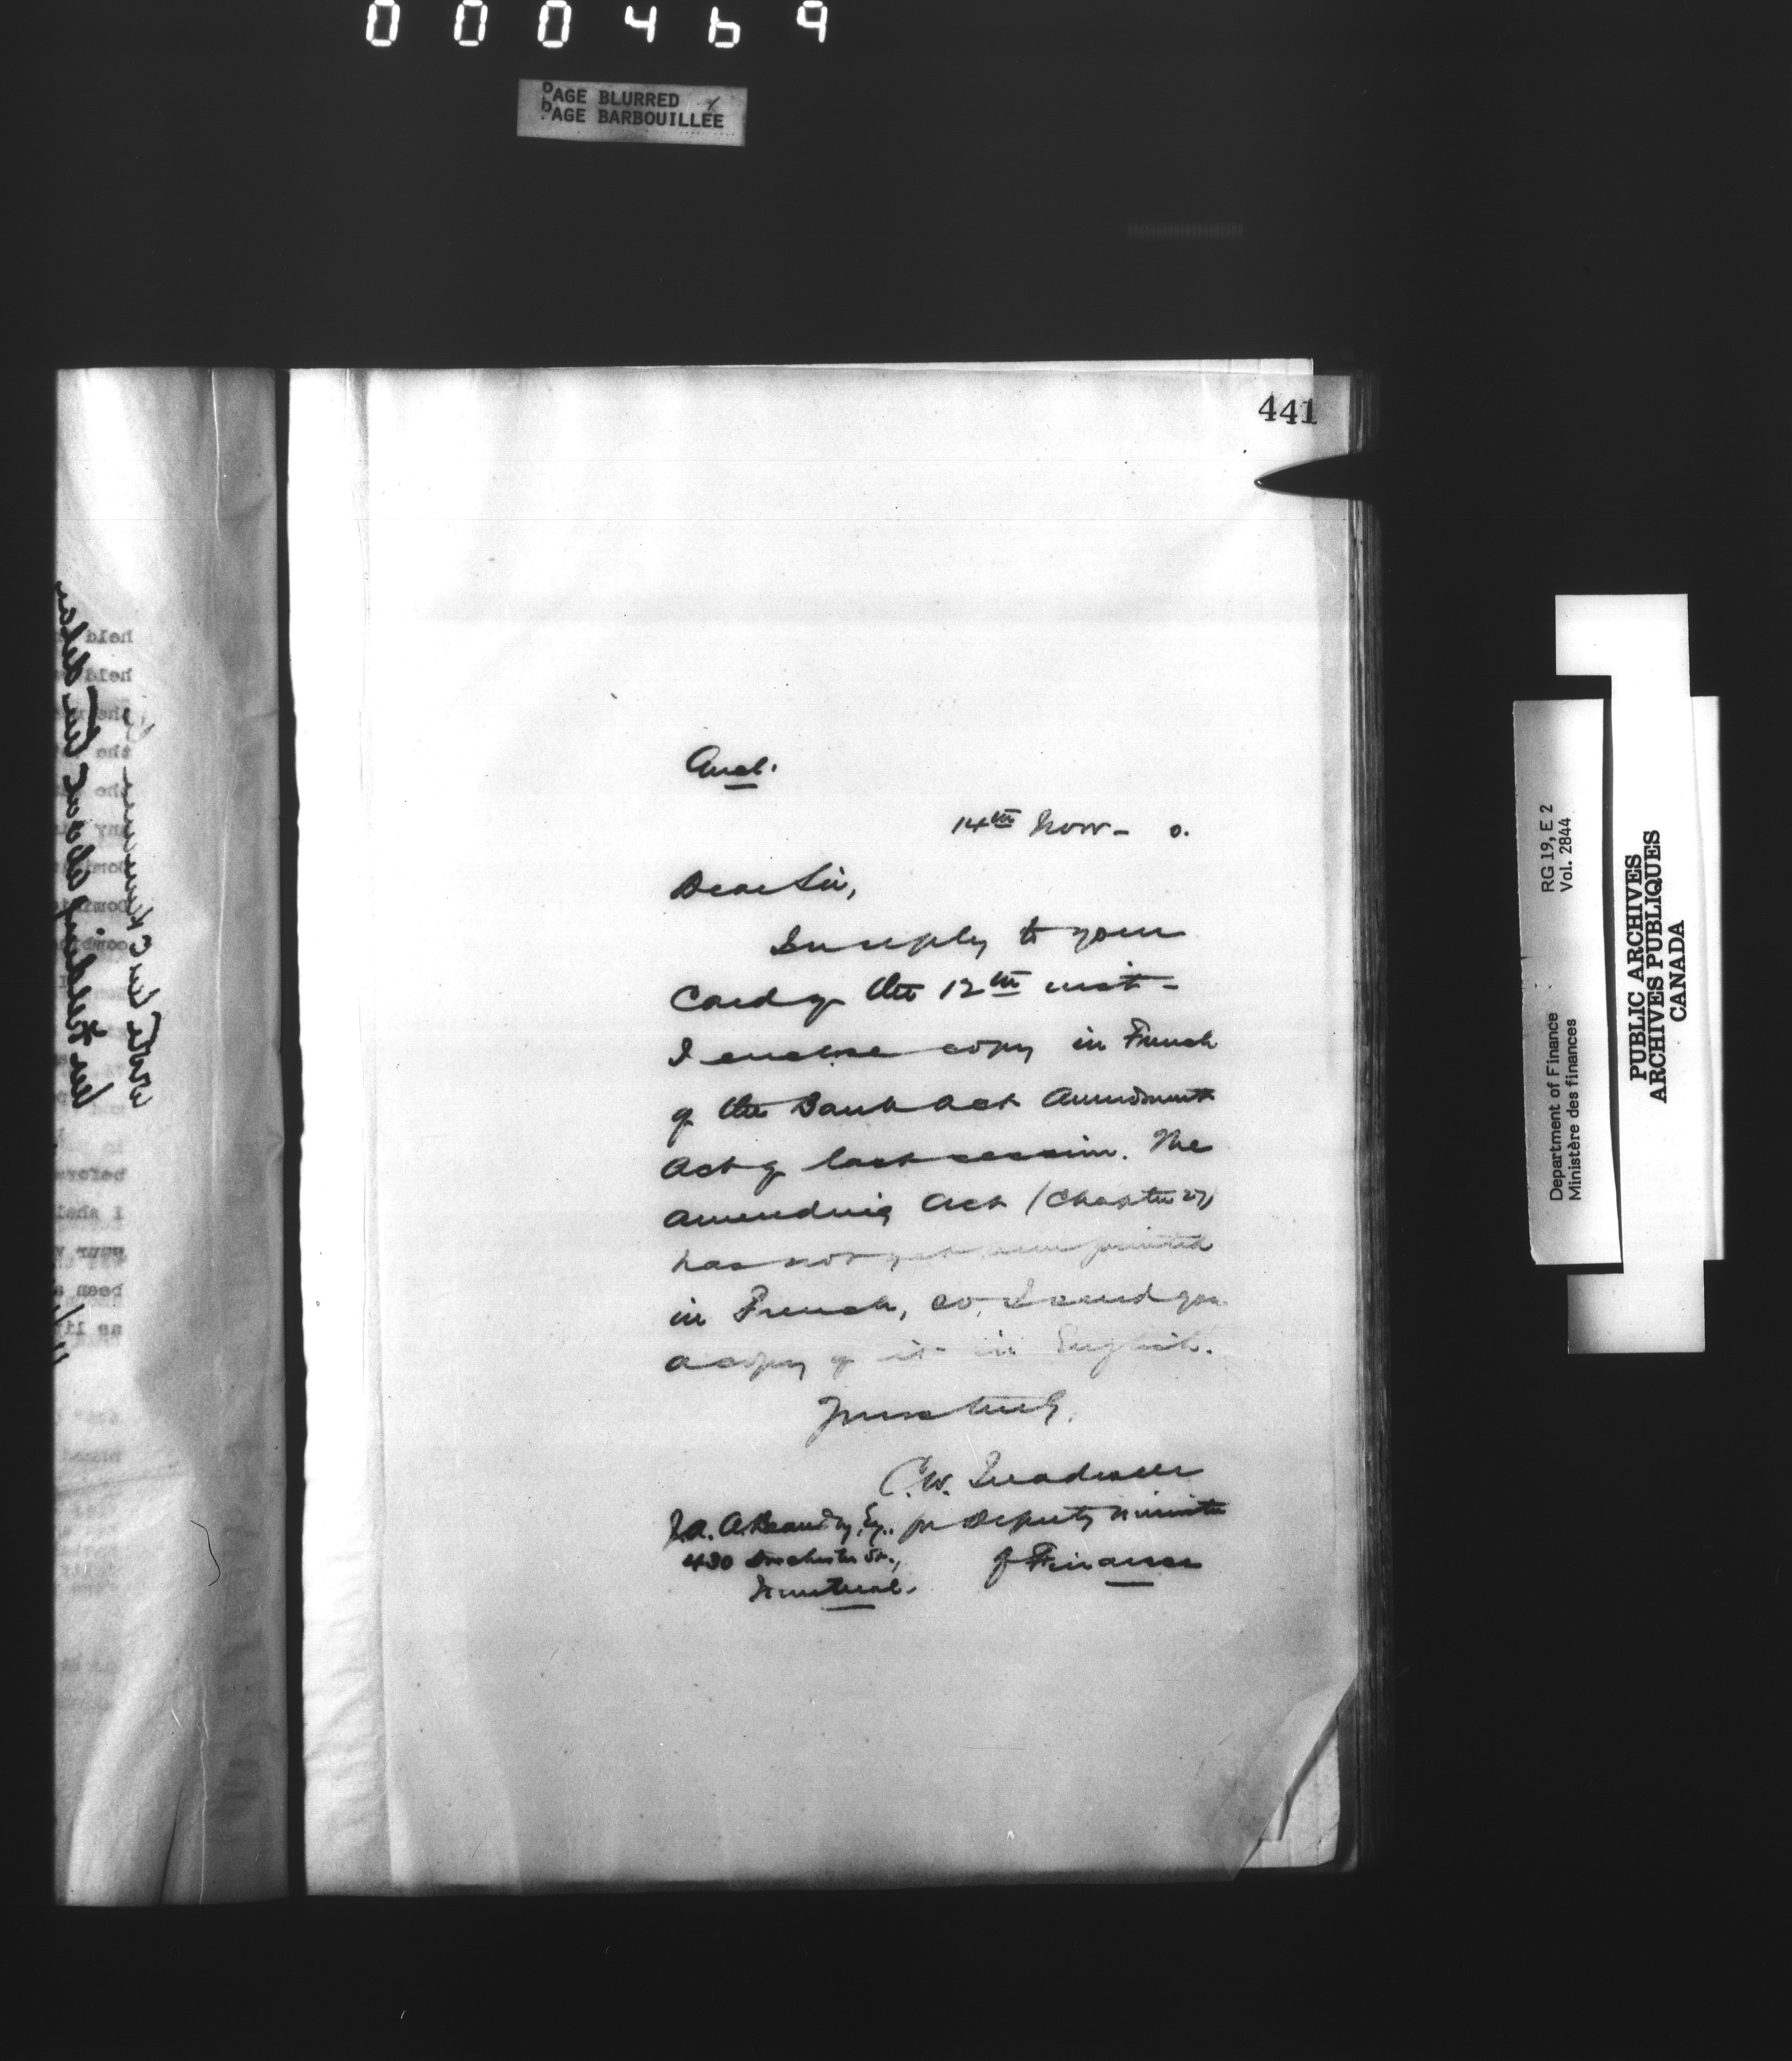 000469
PAGE BLURRED
PAGE BARBOUILLÉE
441
Encl.
14th Nov - 0.
Dear Sir,
In reply to your
Card of the 12th inst -
I enclose copy in French
of the Bank Act Amendment
Act of last session. The
amending Act (Chapter 27)
has not yet been printed
in French, so I send you
a copy of it in English.
Yours truly,
C.W. Treadwell
J.A. A. Beaudry, Esq., for Deputy Minister
430 Dorchester St., of Finance
Montreal.
Department of Finance RG 19, E 2
Ministère des finances Vol. 2844
PUBLIC ARCHIVES
ARCHIVES PUBLIQUES
CANADA